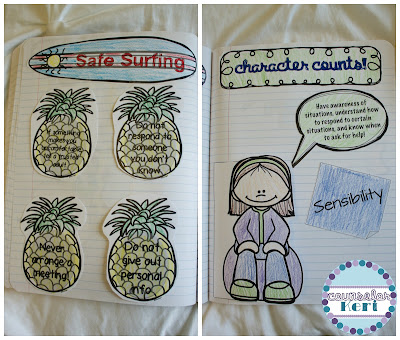 Safe Surfing
If something
makes you
Do not
respond to
someone
you don't
know
Never
arrange a
meeting!
Do not
give out
personal
info.
character counts!
Have awareness of
situations, understand how
to respond to certain
situations, and know when
to ask for help!
Sensibility
counselor
Keri